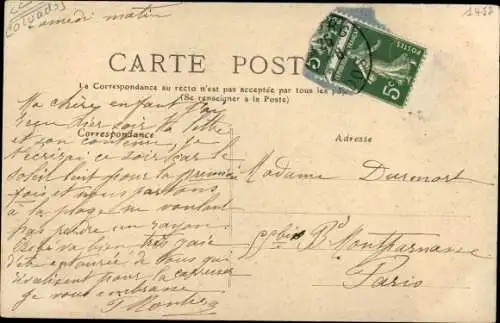 Calvados
1457
Samedi matin
CARTE POST
La Correspondance au recto n'est pas acceptée par tous les pa
(Se renseigner à la Poste)
POSTES
5c
5
Correspondance
Adresse
Ma chère enfant j'ai
reçu hier soir ta lettre
et son contenu, je
t'écrirai ce soir car le
soleil luit pour la première
fois et nous partons
à la plage ne voulant
pas perdre un rayon.
va bien très gaie
d'être entourée de tous qui
rivalisent pour la caresser
Je vous embrasse
Madame
bis Bd Montparnasse
Paris